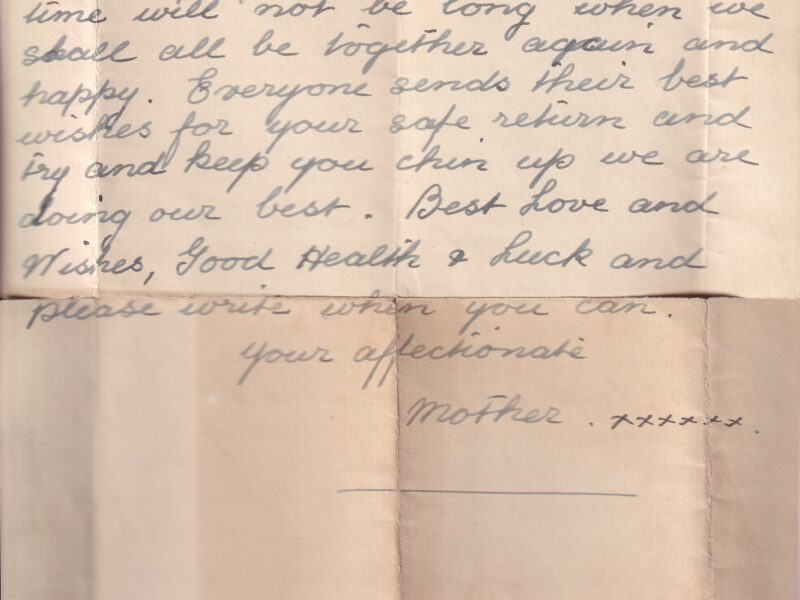 time will not be long when we
shall all be together again and
happy. Everyone sends their best
wishes for your safe return and
try and keep you chin up we are
doing our best. Best Love and
Wishes, Good Health & Luck and
please write when you can.
Your affectionate
Mother. xxxxxxx.